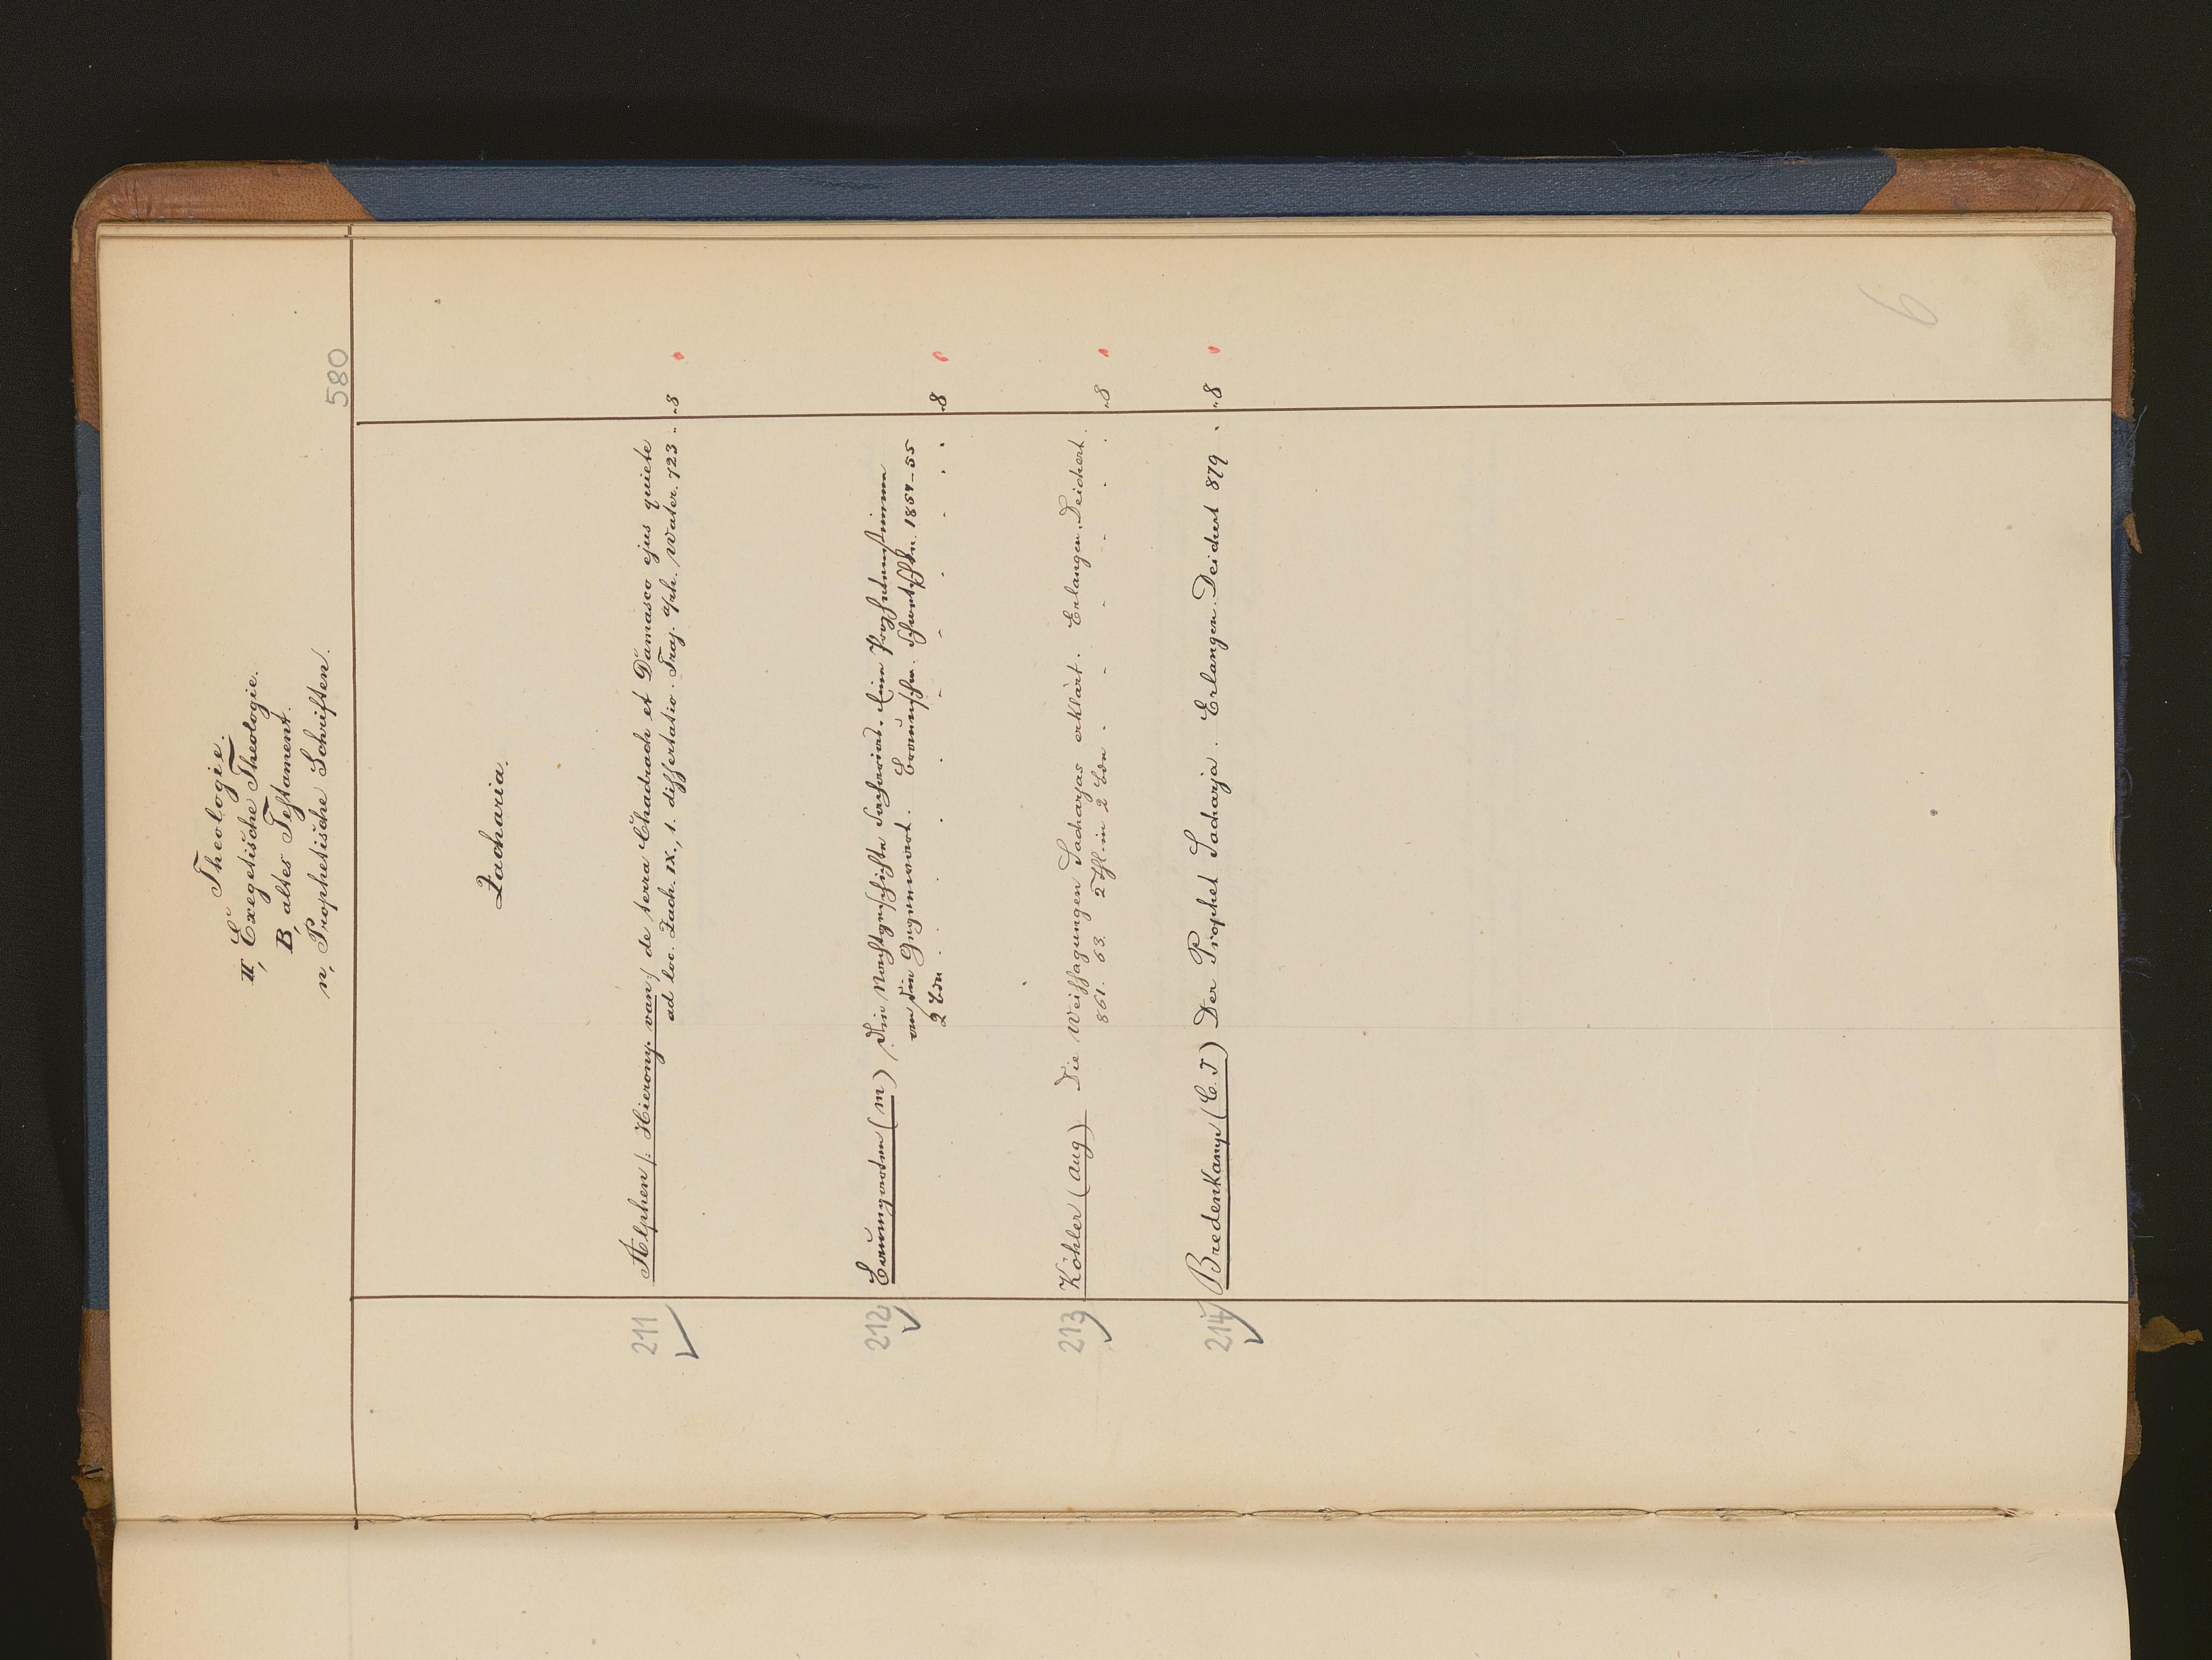 580
Theologie.
II, Exegetische Theologie.
B, altes Testament.
n, Prophetische Schriften.
Zacharia.
211 Alphen /: Hierony. van / de terra Chadrach et Damasco ejus quiete
ad loc. Zach. IX., 1. dissertatio. Traj. a/rh. Water. 723 „ 8
212 Baumgarten (M) Die Nachtgesichte Sacharias. Eine Prophetenstimme
an die Gegenwart. Braunschw. Schwetschke. 1854–55
2 Bde . . . . . . . . 8
213 Köhler (Aug) Die Weissagungen Sacharjas erklärt. Erlangen, Deichert.
861. 63. 2 Thl. in 2 Bdn . . . . . . „ 8
214 Bredenkamp (C. J) Der Prophet Sacharja. Erlangen. Deichert 879 . „ 8